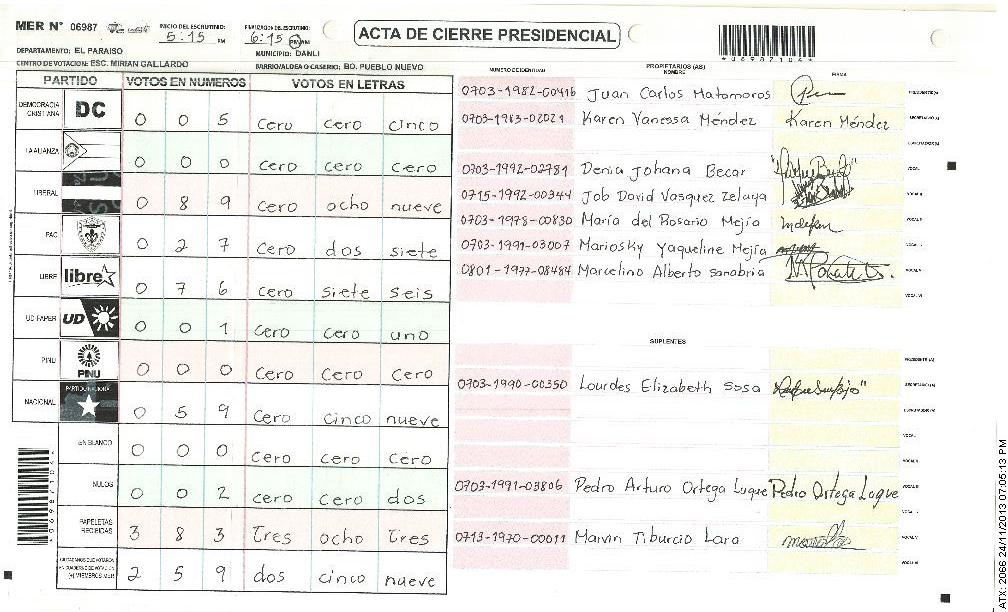 MER N° 06987 INICIO DEL ESCRUTINIO: 5:15 PM FINALIZACION DEL ESCRUTINIO: 6:15 PM/AM
ACTA DE CIERRE PRESIDENCIAL
*06987104*
DEPARTAMENTO: EL PARAISO MUNICIPIO: DANLI
CENTRO DE VOTACION: ESC. MIRIAN GALLARDO BARRIO/ALDEA O CASERIO: BO. PUEBLO NUEVO
PARTIDO VOTOS EN NUMEROS VOTOS EN LETRAS
DEMOCRACIA CRISTIANA DC 0 0 5 cero cero cinco
LA ALIANZA 0 0 0 cero cero cero
LIBERAL 0 8 9 cero ocho nueve
PAC 0 2 7 cero dos siete
LIBRE libre 0 7 6 cero siete seis
UD-FAPER UD 0 0 1 cero cero uno
PINU PINU 0 0 0 cero cero cero
NACIONAL PARTIDO NACIONAL 0 5 9 cero cinco nueve
EN BLANCO 0 0 0 cero cero cero
NULOS 0 0 2 cero cero dos
PAPELETAS RECIBIDAS 3 8 3 tres ocho tres
CIUDADANOS QUE VOTARON EN CUADERNO DE VOTACION (+) MIEMBROS MER 2 5 9 dos cinco nueve
*06987104*
NUMERO DE IDENTIDAD PROPIETARIOS (AS) NOMBRE FIRMA
0703-1982-00416 Juan Carlos Matomoros PRESIDENTE(A)
0703-1983-02021 Karen Vanessa Méndez Karen Méndez SECRETARIO(A)
ESCRUTADOR(A)
0703-1992-02781 Denia Johana Becar VOCAL I
0715-1992-00344 Job David Vasquez Zelaya VOCAL II
0703-1978-00830 María del Rosario Mejía VOCAL III
0703-1991-03007 Mariosky Yaqueline Mejía
0801-1977-08484 Marcelino Alberto Sanabria VOCAL V
VOCAL VI
SUPLENTES
PRESIDENTE (A)
0703-1990-00350 Lourdes Elizabeth Sosa SECRETARIO(A)
ESCRUTADOR(A)
VOCAL I
VOCAL II
0703-1991-03806 Pedro Arturo Ortega Luque Pedro Ortega Luque VOCAL III
0713-1970-00011 Marvin Tiburcio Lara VOCAL V
VOCAL VI
ATX: 2066 24/11/2013 07:05:13 PM